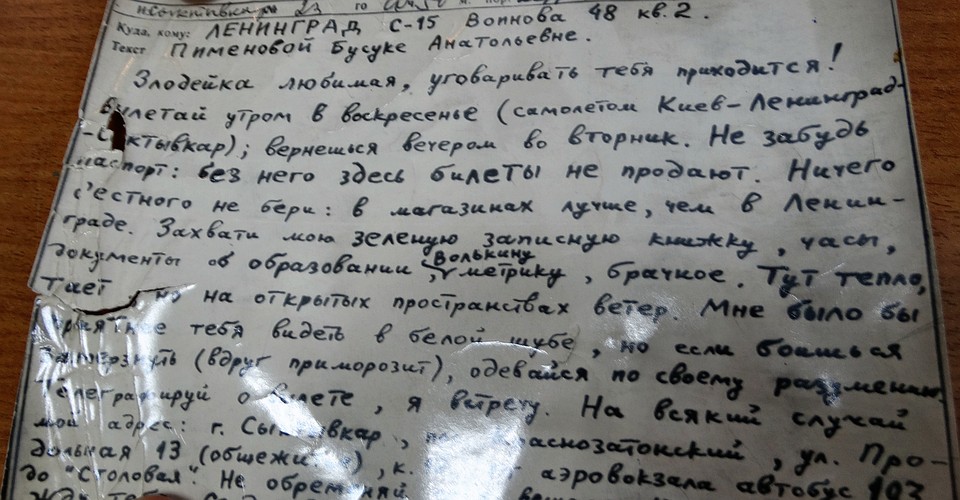 Сыктывкар 23 го
Куда, кому: ЛЕНИНГРАД С-15 Воинова 48 кв. 2.
Текст Пименовой Бусуке Анатольевне.
Злодейка любимая, уговаривать тебя приходится!
Вылетай утром в воскресенье (самолетом Киев-Ленинград-
-Сыктывкар); вернешься вечером во вторник. Не забудь
паспорт: без него здесь билеты не продают. Ничего
с'естного не бери: в магазинах лучше, чем в Ленин-
граде. Захвати мою зеленую записную книжку, часы,
Волькину
документы об образовании, метрику, брачное. Тут тепло,
тает но на открытых пространствах ветер. Мне было бы
приятнее тебя видеть в белой шубе, но если боишься
замерзнуть (вдруг приморозит), одевайся по своему разумению.
Телеграфируй о билете, я встречу. На всякий случай
мой адрес: г. Сыктывкар, Краснозатонский, ул. Про-
дольная 13 (общежитие), к. аэровокзала автобус 107
до "Столовая". Не обременяй